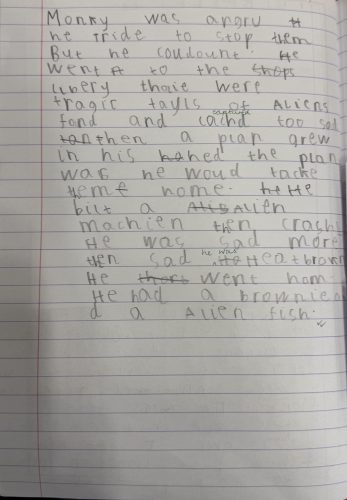 Monky was angru
he tride to stop them
But he coudount. He
went to the
libery thaie were
tragic tayls of ALiens
fond and cachd too sad
then a plan grew
in his hed the plan
was he woud tacke
theme home. He
bilt a Alien
machien then crash
He was sad more
then sad he was Heatbroun
He went hom
He had a brownie
d a ALien fish.